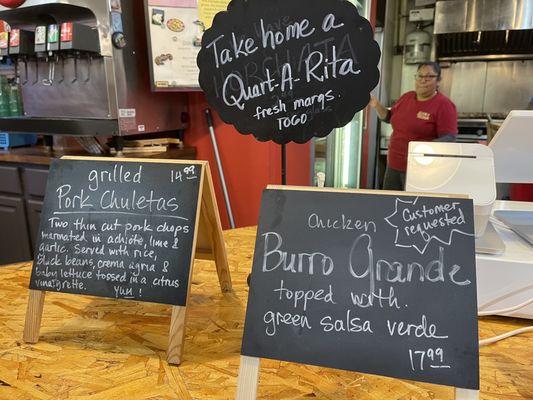 Take home a
Quart-A-Rita
fresh margs.
TOGO
grilled 14.99
Pork Chuletas
Two thin cut pork chops
marinated in achiote, lime &
garlic. Served with rice,
black beans, crema agria &
baby lettuce tossed in a citrus
vinaigrette. yum!
Customer
requested
Chicken
Burro Grande
topped with
green salsa verde
17.99